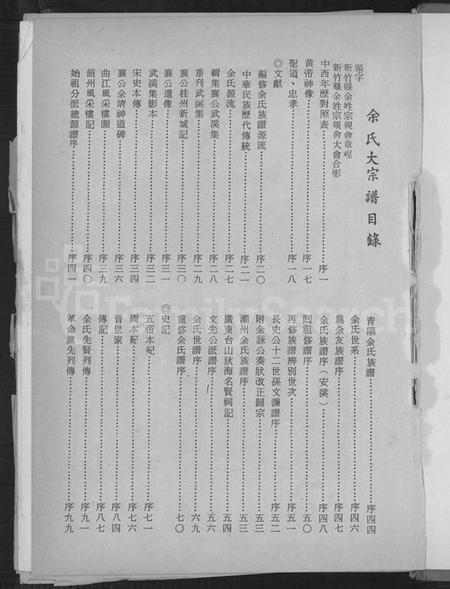 余氏大宗譜目錄
題字
新竹縣余姓宗親會章程
新竹縣余姓宗親會大會合影
中西年歷對照表………序一
黃帝神像………序一七
聖道、忠孝………序一八
◎文獻
編修余氏族譜源流………序二〇
中華民族歷代傳統………
余氏源流………序二一
輯集襄公武溪集………序二八
重刊武溪集………序二九
襄公桂州新城記………序三〇
襄公遺像………序三一
武溪集影本………序三二
宋史本傳………序三四
襄公余靖神道碑………序三六
曲江風采樓圖………序三九
韶州風采樓記………序四〇
始祖分派總源譜序………序四一
青陽余氏族譜………序四四
余氏世系………序四六
為余友族譜序………序四七
余氏族譜序（安溪）………序四八
同祖修譜序………序五〇
再修族譜辨別世次………序五一
長史公十二世孫文瀰譜序………序五二
附余詠公奏狀改正圖宗………序五三
潮州余氏族譜序………序五三
廣東台山荻海名賢祠記………序五四
文先公派譜序………序五六
余氏世譜序………序六九
重修余氏譜序………序七〇
◎史記
五帝本紀………序七一
周本紀………序七六
晉世家………序八四
傳記………序八七
余氏先賢列傳………序九一
革命黨先列傳………序九九